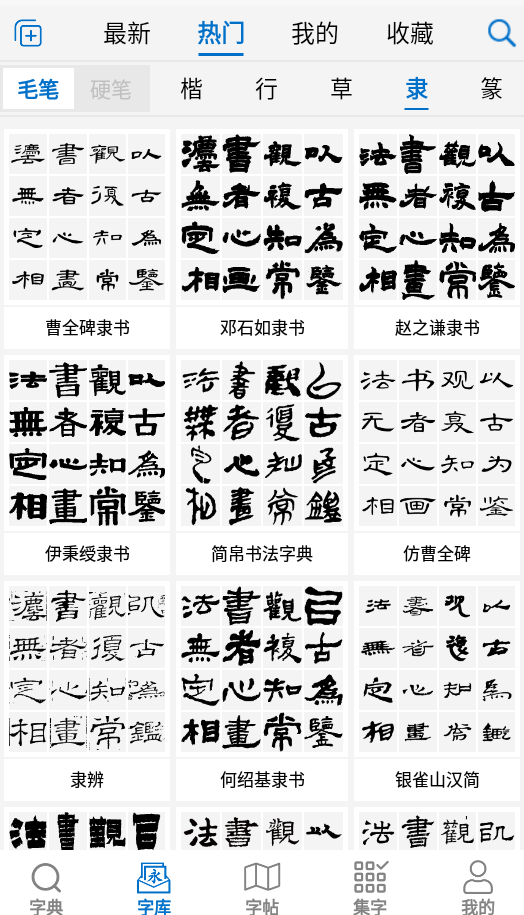 最新 热门 我的 收藏
毛笔 硬笔 楷 行 草 隶 篆
灋書觀以 灋書觀以 法書觀以
無者復古 無者複古 無者複古
定心知為 定心知為 定心知為
相畫常鑒 相画常鑒 相畫常鑒
曹全碑隶书 邓石如隶书 赵之谦隶书
法書觀以 法書觀以 法书观以
無者複古 無者復古 无者复古
定心知為 定心知為 定心知为
相畫常鑒 相畫常鑑 相画常鉴
伊秉绶隶书 简帛书法字典 仿曹全碑
灋書觀㠯 法書觀㠯 法書观以
無者復古 無者複古 無者復古
定心知為 定心知為 定心知為
相畫常鑑 相畫常鑒 相畫常鑑
隶辨 何绍基隶书 银雀山汉简
法書觀㠯 法書觀以 法書觀㠯
字典 字库 字帖 集字 我的